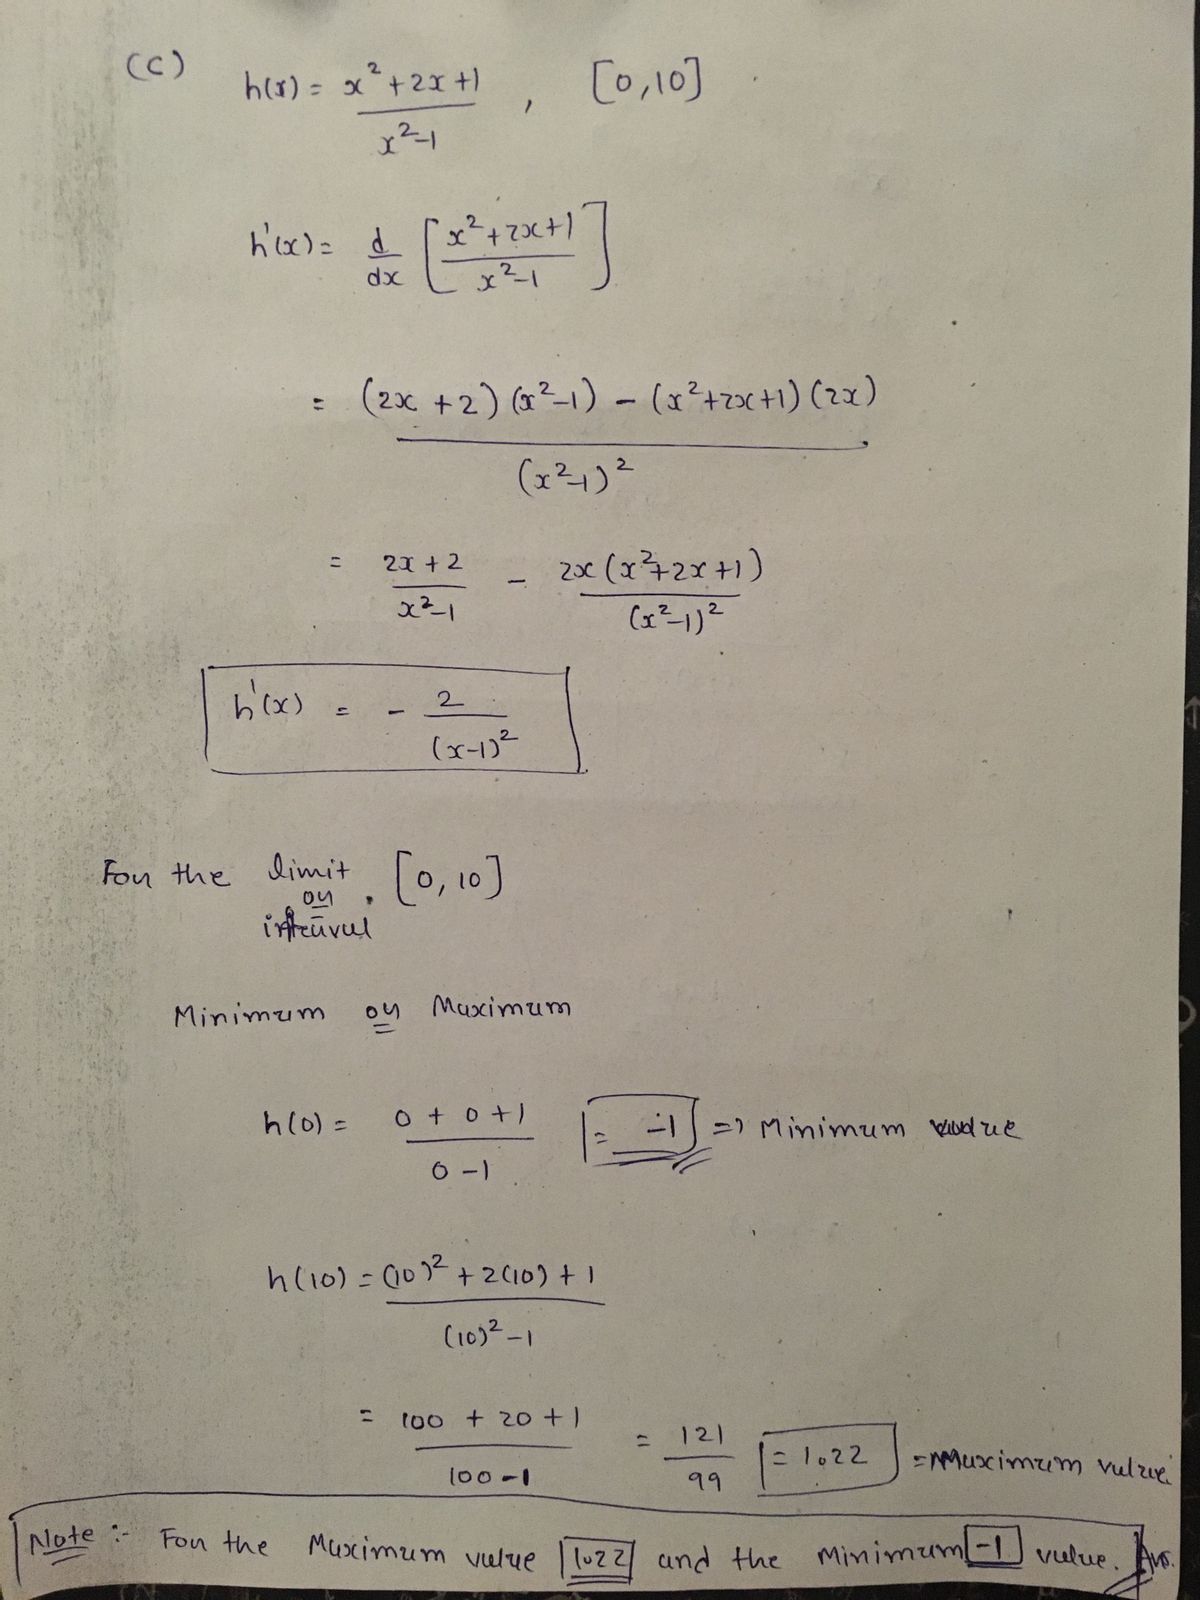 (c) h(x) = x²+2x+1 / x²-1 , [0,10]
h'(x) = d/dx [x²+2x+1 / x²-1]
= (2x+2)(x²-1) - (x²+2x+1)(2x) / (x²-1)²
= 2x+2 / x²-1 - 2x(x²+2x+1) / (x²-1)²
h'(x) = - 2 / (x-1)²
For the limit or interval [0,10]
Minimum or Maximum
h(0) = 0+0+1 / 0-1 = -1 => Minimum value
h(10) = (10)²+2(10)+1 / (10)²-1
= 100+20+1 / 100-1 = 121 / 99 = 1.22 => Maximum value
Note :- For the Maximum value 1.22 and the Minimum -1 value. Ans.